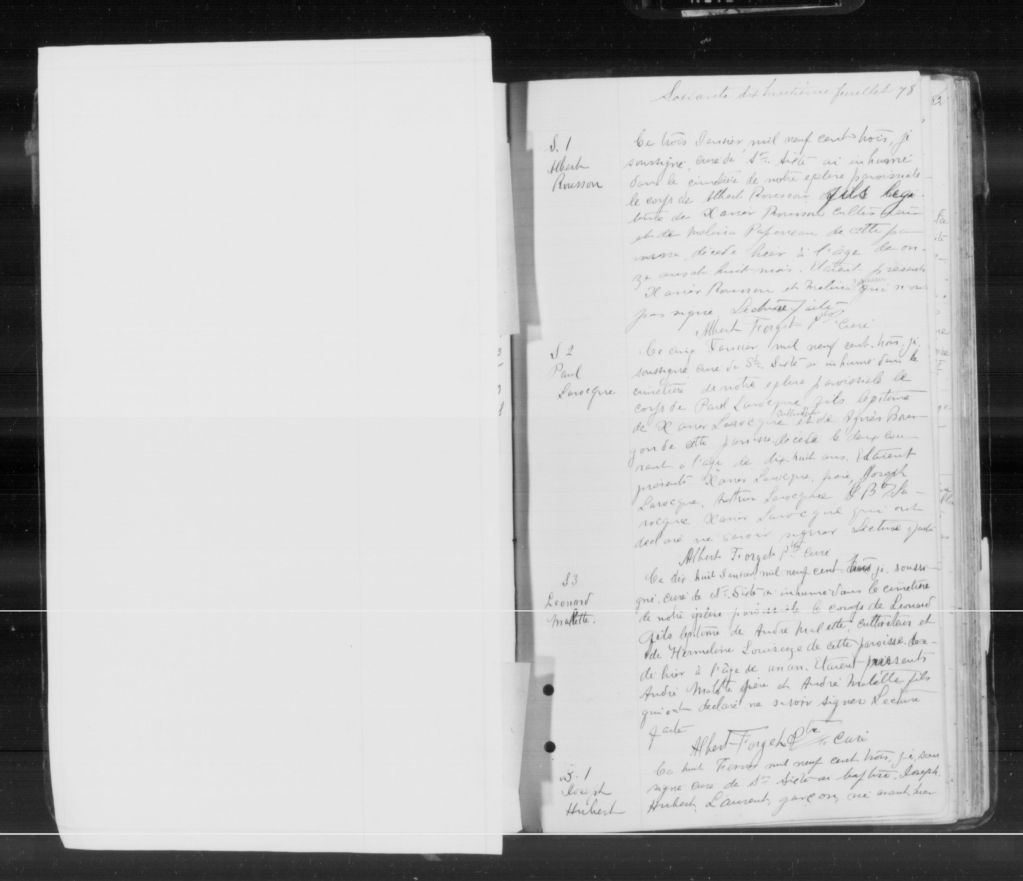 Soixante dix huitième feuillet 78
S. 1
Albert
Rousson
Ce trois Janvier mil neuf cent trois, je
soussigné curé de Ste. Sixte ai inhumé
dans le cimetière de notre église paroissiale
le corps de Albert Rousson fils légi-
time de Xavier Rousson cultivateur
et de Melina Papineau de cette pa-
roisse décédé hier à l'âge de on-
ze ans et huit mois. Etaient présents
Xavier Rousson et qui n'ont
pas signé Lecture faite
Albert Forget Ptre Curé
S 2
Paul
Larocque
Ce cinq Janvier mil neuf cent trois, je
soussigné curé de Ste. Sixte ai inhumé dans le
cimetière de notre église paroissiale le
corps de Paul Larocque fils légitime
de Xavier Larocque cultivateur et de Agnès Bour-
gon de cette paroisse décédé le deux cou-
rant à l'âge de dix huit ans. Etaient
présents Xavier Larocque, père, Joseph
Larocque, Larocque J Bte La-
rocque Xavier Larocque qui ont
déclaré ne savoir signer Lecture faite
Albert Forget Ptre Curé
S 3
Leonard
Malette.
Ce dix huit Janvier mil neuf cent trois je soussi-
gné, curé de St. Sixte ai inhumé dans le cimetière
de notre église paroissiale le corps de Leonard
fils légitime de André Malette cultivateur et
de Hermeline de cette paroisse décé-
dé hier à l'âge de un an. Etaient présents
André Malette père et André Malette fils
qui ont déclaré ne savoir signer Lecture
faite
Albert Forget Ptre Curé
B. 1
Joseph
Hubert
Ce huit Février mil neuf cent trois, je, sous
signé curé de St. Sixte ai baptisé, Joseph,
Hubert, Laurent, garçon, né avant hier